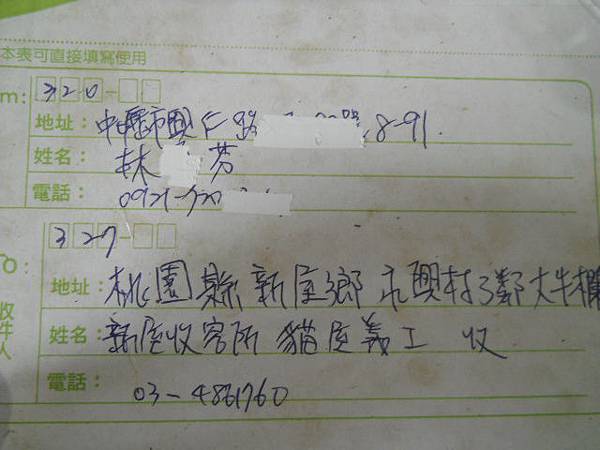 本表可直接填寫使用
m: 320-
地址: 中壢市興仁路 8-91
姓名: 林 芳
電話: 0921-720
327-
O: 地址: 桃園縣新屋鄉永興村3鄰大牛欄
收件人 姓名: 新屋收容所 貓屋義工 收
電話: 03-4861760